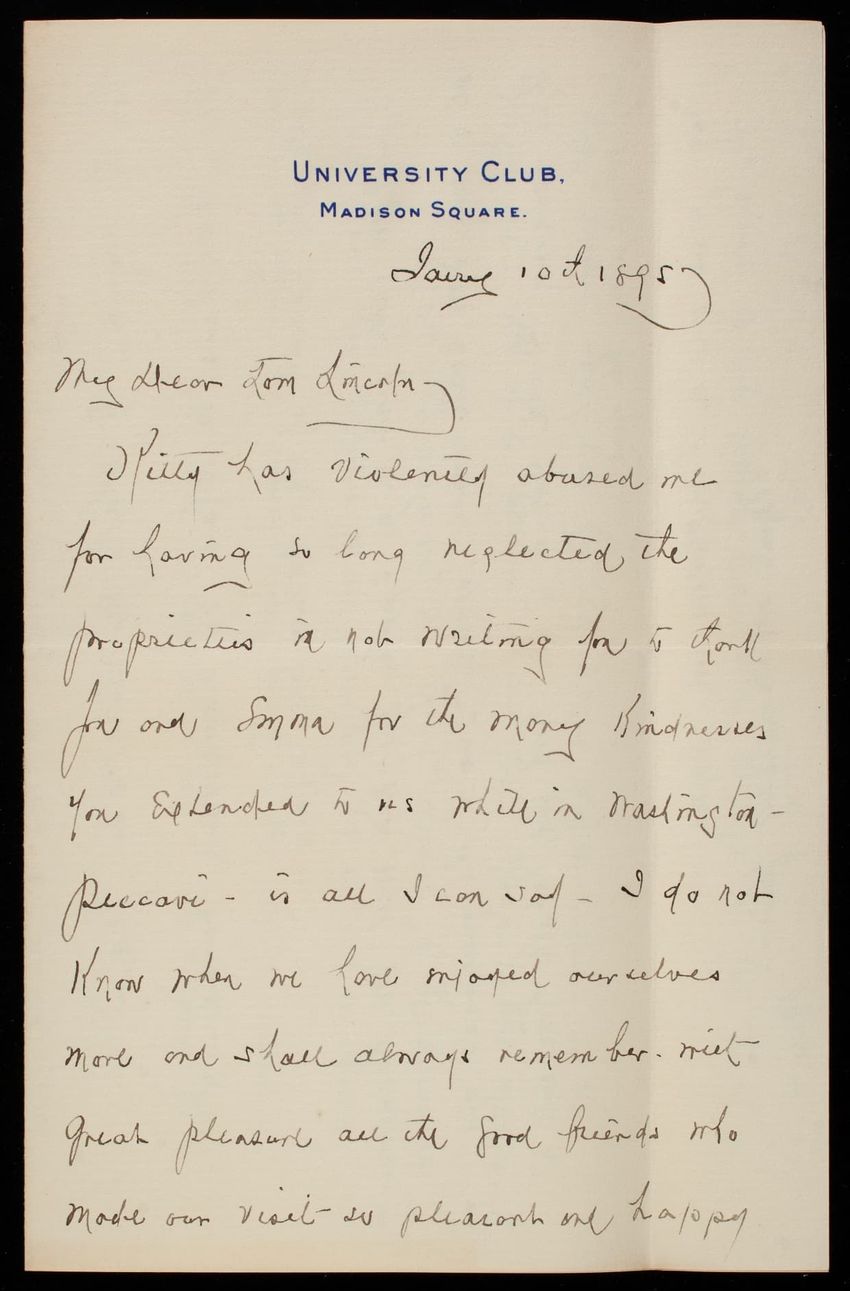 UNIVERSITY CLUB,
MADISON SQUARE.
Jany 10th 1895
My Dear Tom Lincoln
Kitty has violently abused me
for having so long neglected the
proprieties in not writing you to thank
you and Emma for the many kindnesses
you Extended to us while in Washington -
Peccavi - is all I can say - I do not
Know when we have enjoyed ourselves
more and shall always remember with
great pleasure all the good friends who
made our visit so pleasant and happy